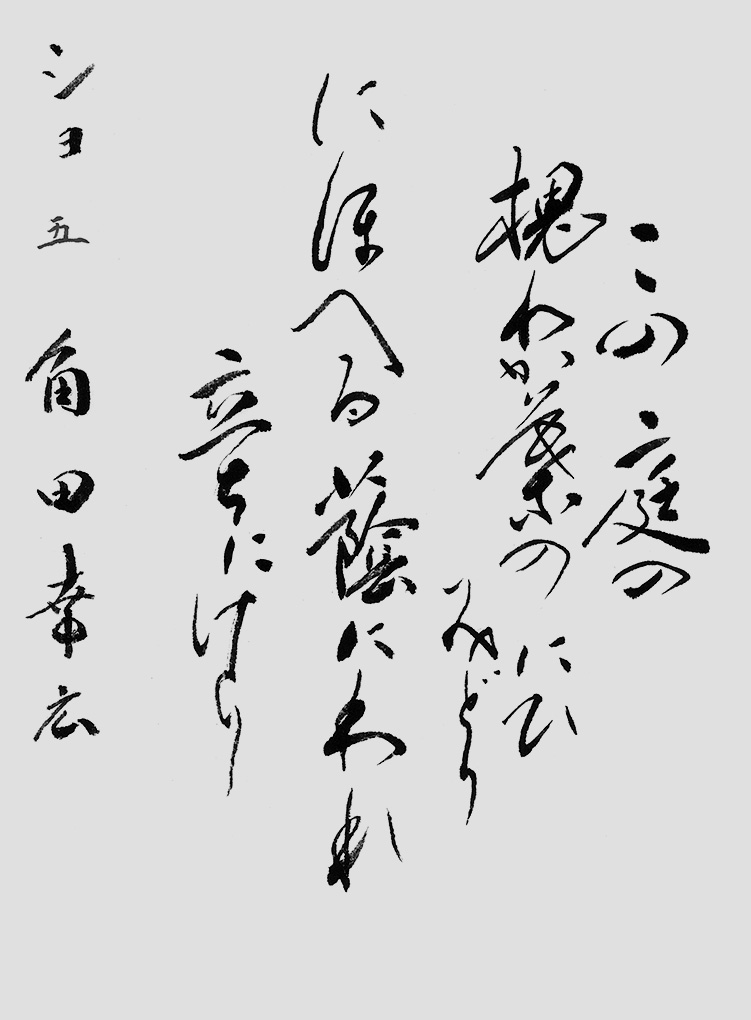 この庭の
槐わか葉のにひ
みどり
にほへる蔭にわれ
立ちにけり
ショ五 角田幸広